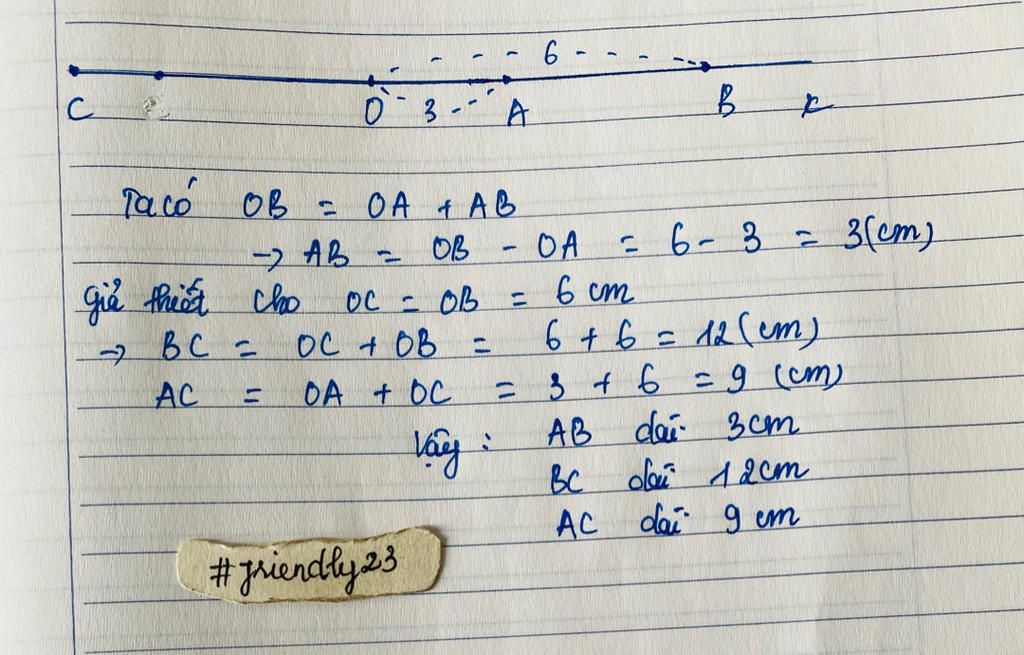 6
C O 3 A B x
Ta có OB = OA + AB
→ AB = OB - OA = 6 - 3 = 3(cm)
Giả thiết cho OC = OB = 6 cm
→ BC = OC + OB = 6 + 6 = 12 (cm)
AC = OA + OC = 3 + 6 = 9 (cm)
Vậy : AB dài 3cm
BC dài 12cm
AC dài 9 cm
#friendly23